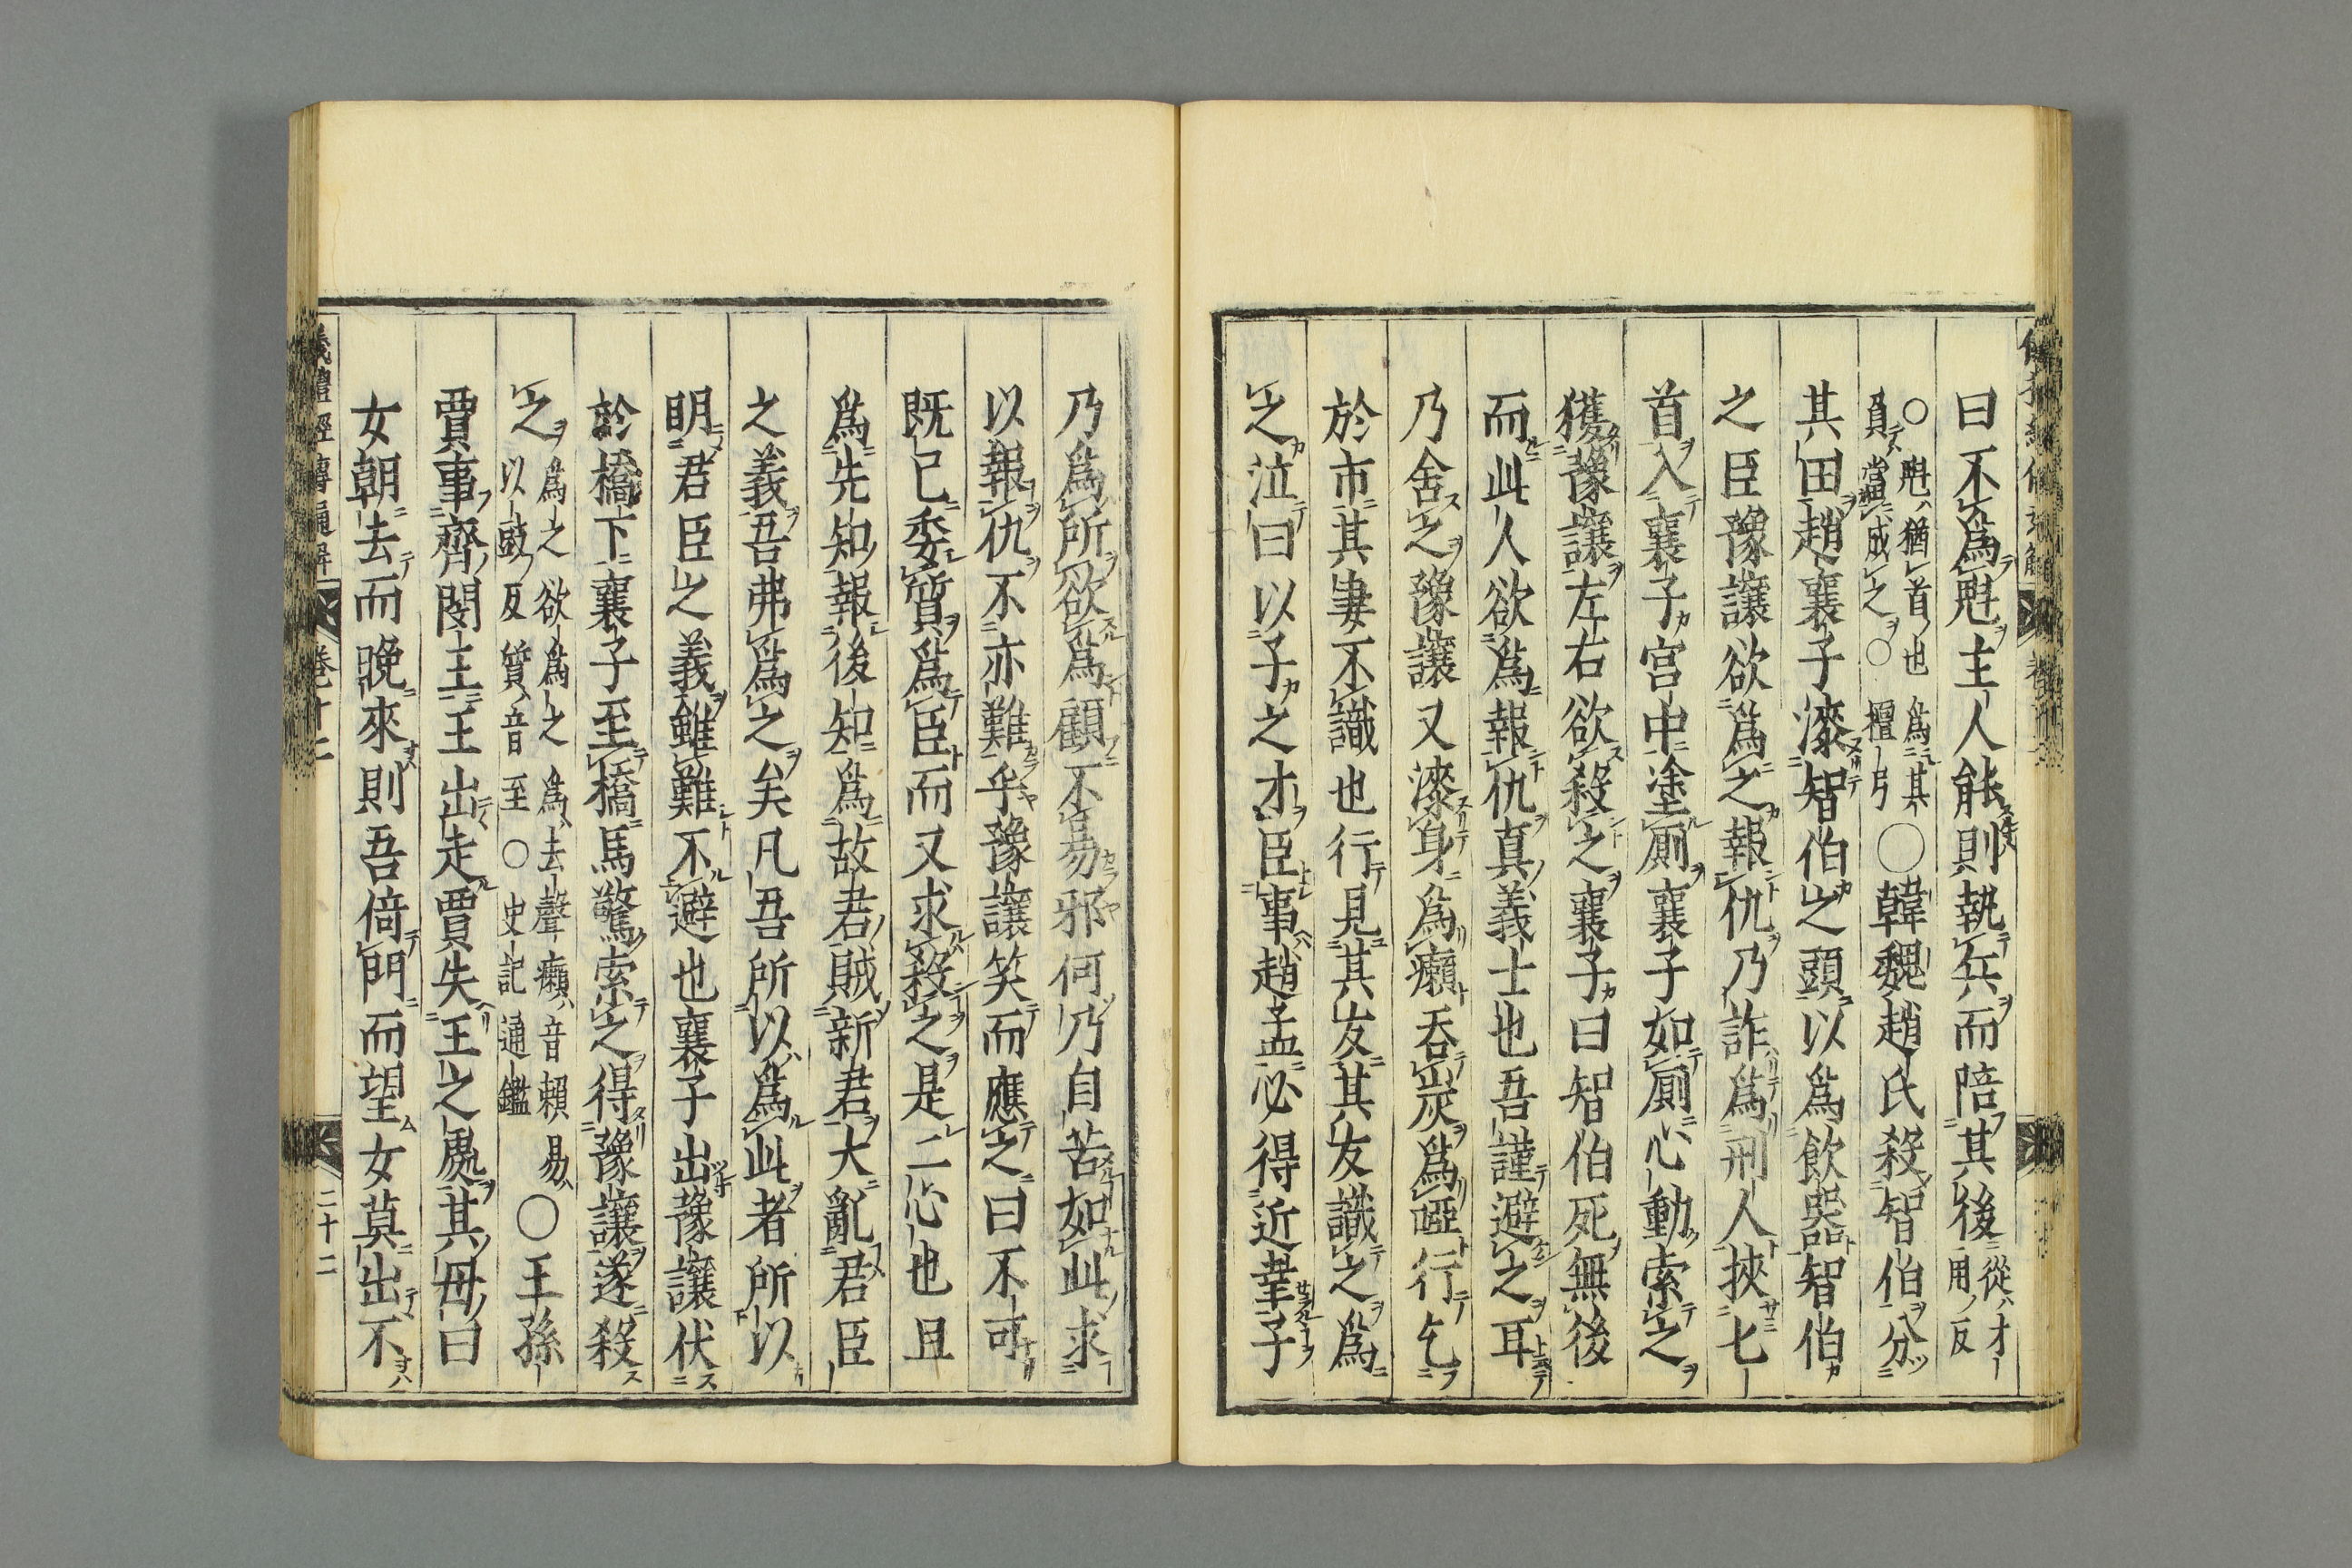 曰不爲魁主人能則執兵而陪其後從才用反
○魁猶首也爲其負當成之○檀弓○韓魏趙氏殺智伯分
其田趙襄子漆智伯之頭以爲飲器智伯
之臣豫讓欲爲之報仇乃詐爲刑人挾匕
首入襄子宮中塗厠襄子如厠心動索之
獲豫讓左右欲殺之襄子曰智伯死無後
而此人欲爲報仇真義士也吾謹避之耳
乃舍之豫讓又漆身爲癩吞炭爲啞行乞
於市其妻不識也行見其友其友識之爲
之泣曰以子之才臣事趙孟必得近幸子
乃爲所欲爲顧不易邪何乃自苦如此求
以報仇不亦難乎豫讓笑而應之曰不可
既已委質爲臣而又求殺之是二心也且
爲先知報後知爲故君賊新君大亂君臣
之義吾弗爲之矣凡吾所以爲此者所以
明君臣之義雖難不避也襄子出豫讓伏
於橋下襄子至橋馬驚索之得豫讓遂殺
之爲之欲爲之爲去聲癩音賴易以豉反質音至○史記通鑑○王孫
賈事齊閔王王出走賈失王之處其母曰
女朝去而晚來則吾倚門而望女莫出不
儀禮經傳通解 卷十二 二十二